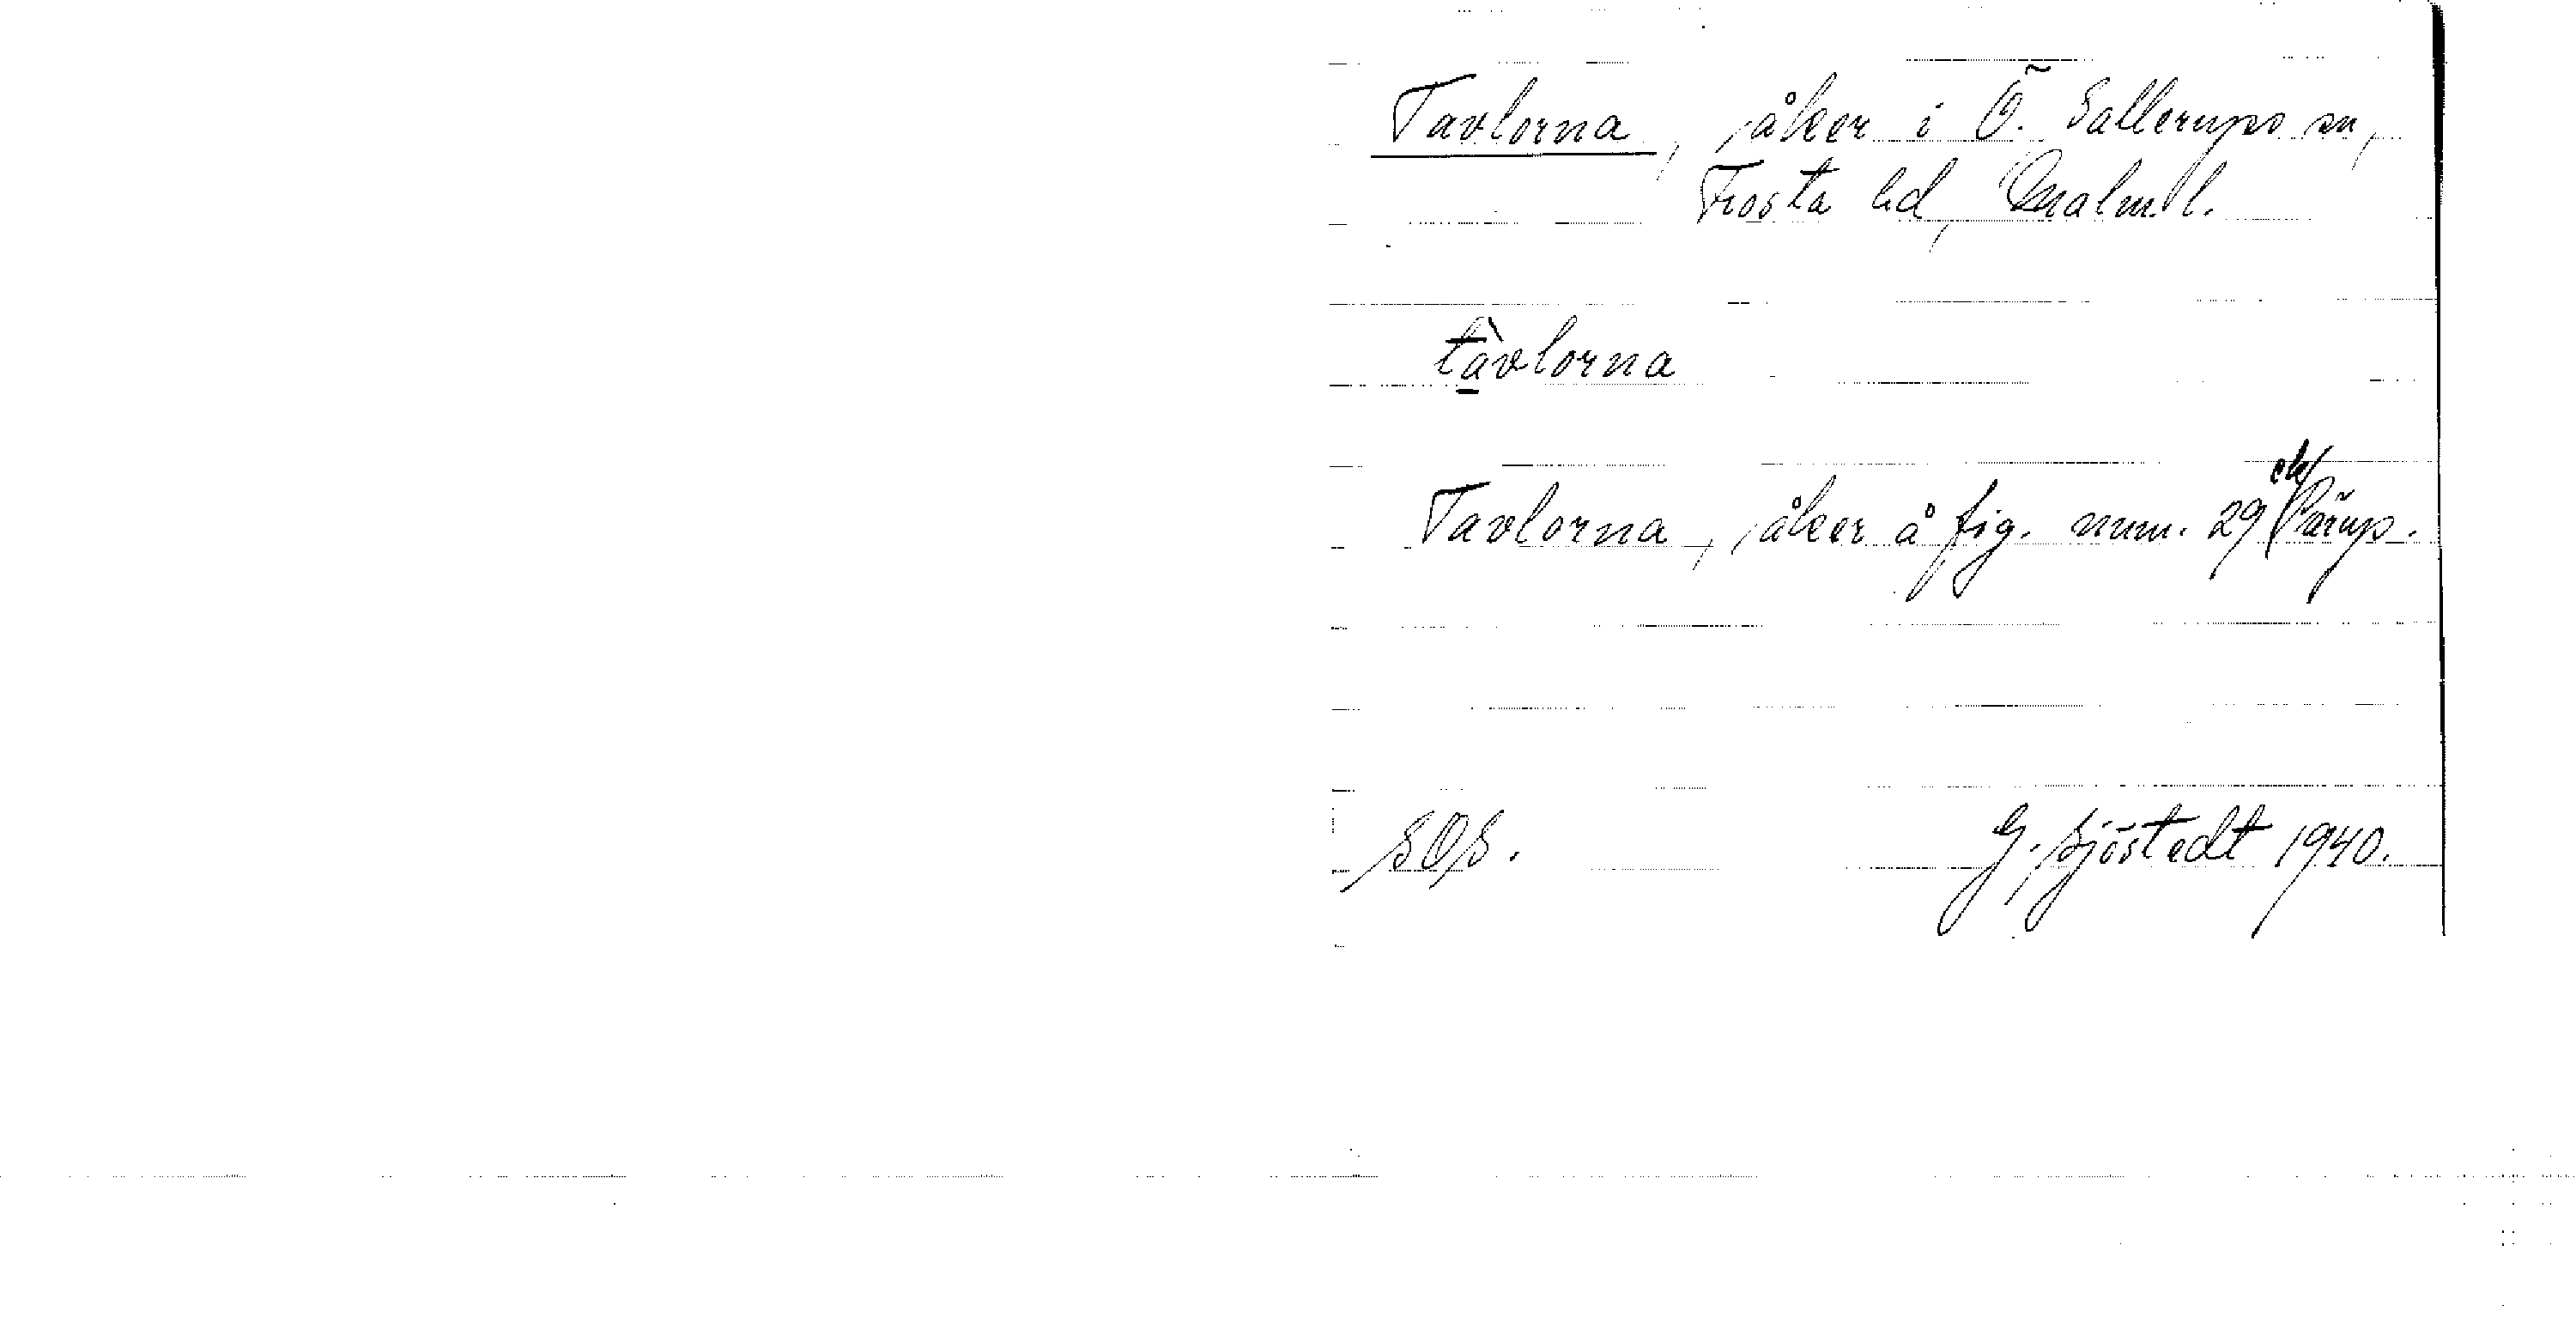 Tavlorna, åker i Ö. Sallerups sn,
Frosta hd, Malm. l.
tàvlorna
Tavlorna, åker å fig. num. 29 Pärup.
SOS.
G. Sjöstedt 1940.